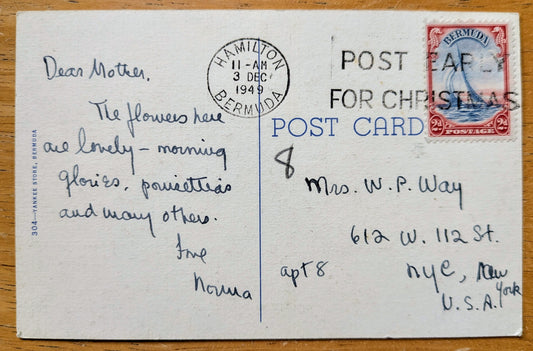 Dear Mother,
The flowers here
are lovely – morning
glories, poinsettias
and many others.
Love
Norma
304—YANKEE STORE, BERMUDA
HAMILTON
11-AM
3 DEC
1949
BERMUDA
POST EARLY
FOR CHRISTMAS
BERMUDA
2d 2d
POSTAGE
POST CARD
8
Mrs. W. P. Way
612 W. 112 St.
apt 8
NYC, New
York
U.S.A.